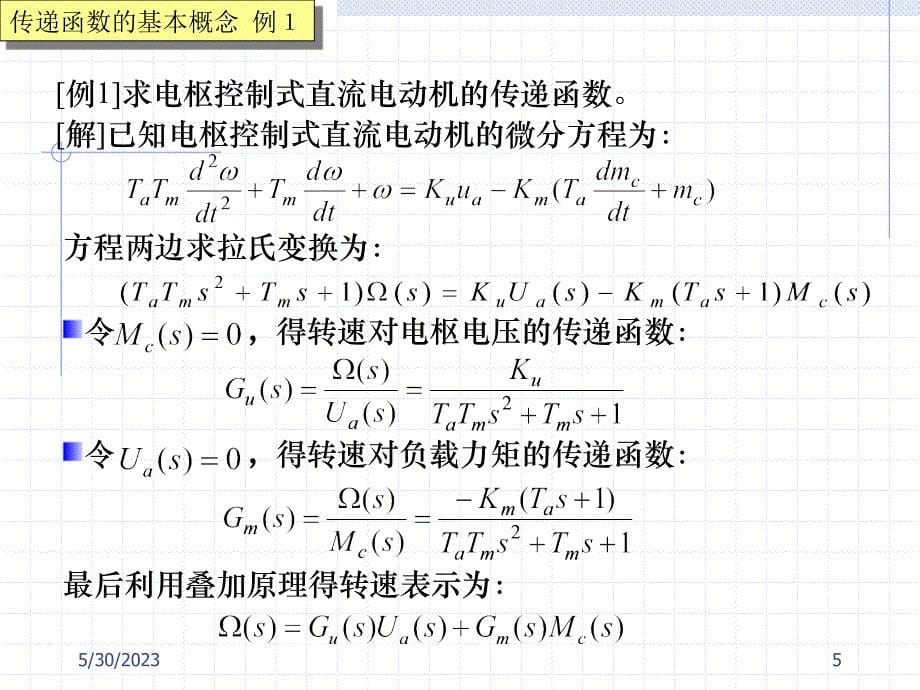 传递函数的基本概念 例 1
[例1]求电枢控制式直流电动机的传递函数。
[解]已知电枢控制式直流电动机的微分方程为：
T_aT_m d²ω/dt² + T_m dω/dt + ω = K_u u_a − K_m(T_a dm_c/dt + m_c)
方程两边求拉氏变换为：
(T_aT_m s² + T_m s + 1)Ω(s) = K_uU_a(s) − K_m(T_a s + 1)M_c(s)
令M_c(s) = 0，得转速对电枢电压的传递函数：
G_u(s) = Ω(s)/U_a(s) = K_u/(T_aT_m s² + T_m s + 1)
令U_a(s) = 0，得转速对负载力矩的传递函数：
G_m(s) = Ω(s)/M_c(s) = −K_m(T_a s + 1)/(T_aT_m s² + T_m s + 1)
最后利用叠加原理得转速表示为：
Ω(s) = G_u(s)U_a(s) + G_m(s)M_c(s)
5/30/2023 5